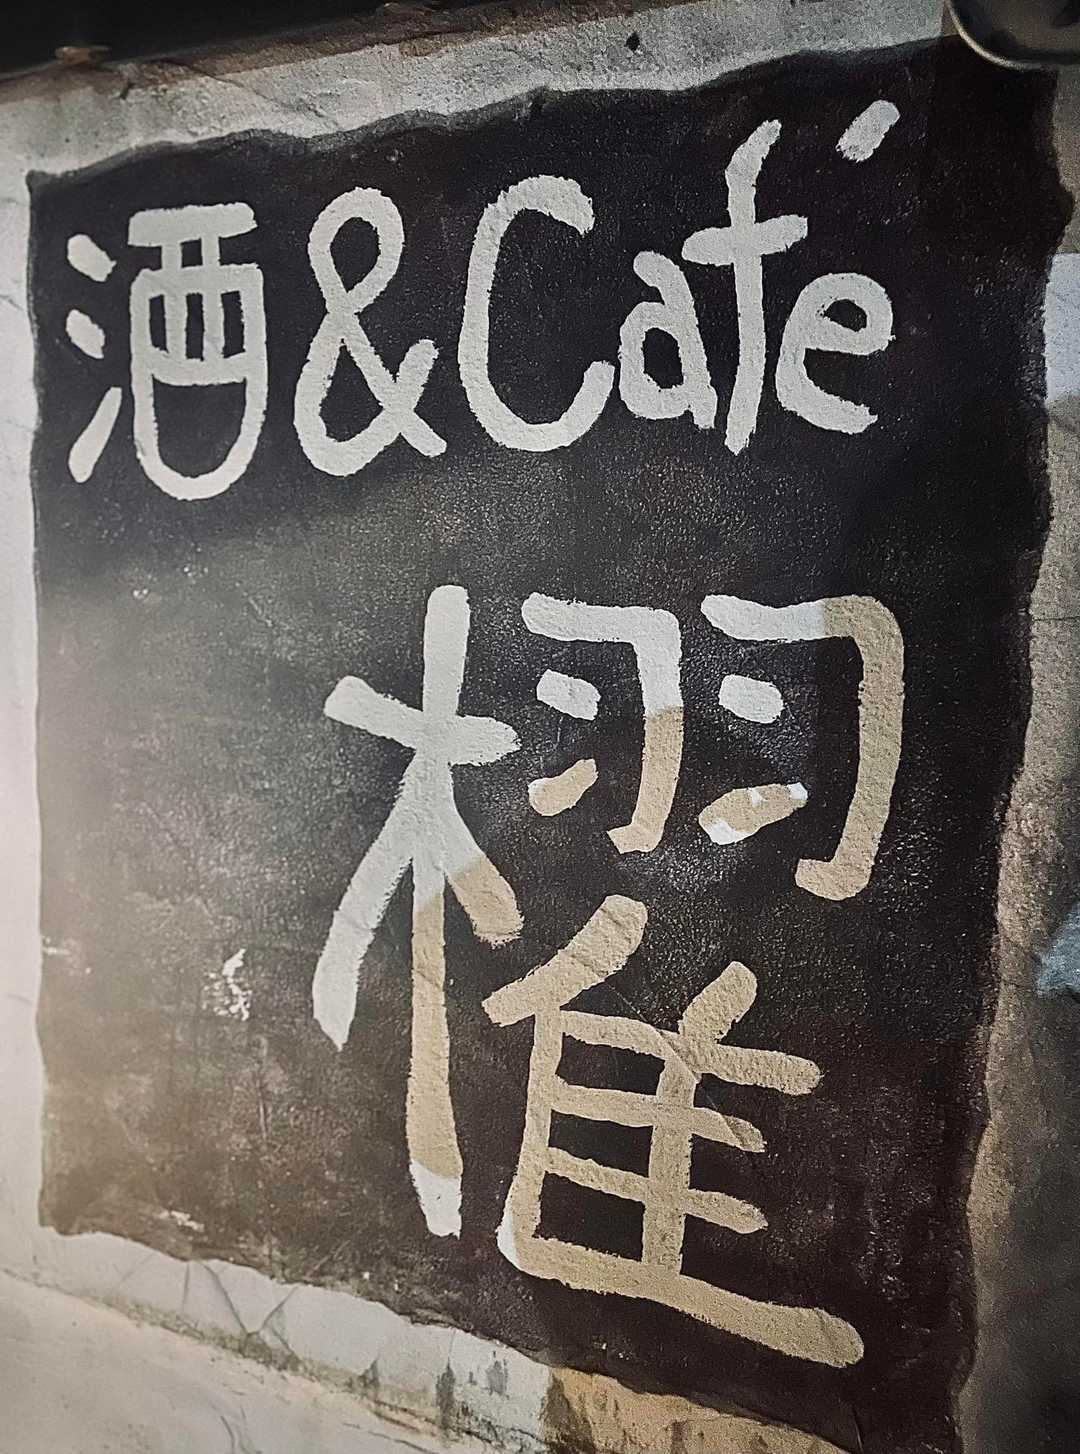 酒&Café
櫂